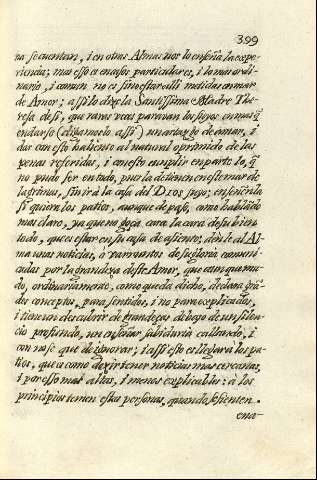 399
na se cuentan, i en otras Almas nos lo enseña la expe-
riencia; mas esso es en casos particulares, i lo mas ordi-
nario, i comun no es sino estar alli metidas en mar
de Amor; assi lo dixo la Santissima Madre The-
resa de si, que raras veces paravan los suyos en mas q̃
endarse (digamoslo assi) un hartazgo de amar, i
dar con esto haliento al natural oprimido de las
penas referidas, i con esto cumplir en parte lo, q̃
no pudo ser en todo, pues la detienen en este mar de
lagrimas, sin ir à la casa del Dios suyo; enseñenla
si quiere los patios, aunque de paso, o mas hablando
mas claro, ya que no goça cara la cara de su bien
todo, que es estar en su casa de asiente; den le al Al-
ma unas noticias, o varruntos de su gloria comuni-
cadas por la grandeza de este Amor, que aunque mu-
do, ordinariamente, como queda dicho, declara grã-
des conceptos, para sentidos, i no para explicados,
i tiene un descubrir de grandeças debajo de un silen-
cio profundo, un enseñar sabiduria callando, i
con no se que de ignorar; i assi esto es llegar à los pa-
tios, que a como dexir tener noticias mas cercanas,
i por esso mas altas, i menos explicables: à los
principios temen estas personas, quando se sienten
ena-